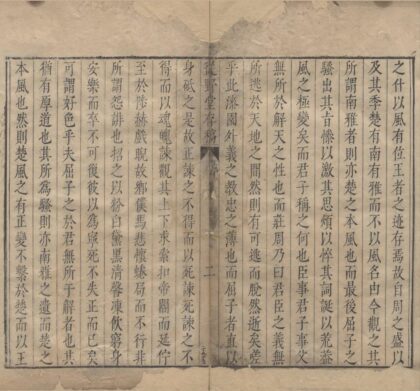 之什以位王者之迹存焉故自周之盛以
及其季楚有南有雅而不以風名由今觀之其
所謂南雅者則亦楚之本風也而最後屈子之
騷出其言憭以激其思煩以悴其詞誕以荒蓋
風之極變矣而君子稱之何也臣事君子事父
無所於解天之性也而莊周乃曰君臣之義無
所逃於天地之間然則有可逃而脫然逝矣嗟
乎此漆園外義之教忠之薄也而屈子者直以
從野堂存稿
二
身砥之是故正諫之不得而以死諫死諫之不
得而以魂魄諫觀其上下求索扣帝閽而延佇
至於陟赫戲睨故鄉僕馬悲懷蜷局而不行非
所謂怨誹也招之以粉白黛黑清馨凍飲窮身
安樂而卒不可復彼以為寧死不失正而已矣
可謂好色乎夫屈子之於君無所于解者也其
猶有厚道也其所為騷則亦南雅之遺而楚之
本風也然則楚風之有正變不繫於楚而以王